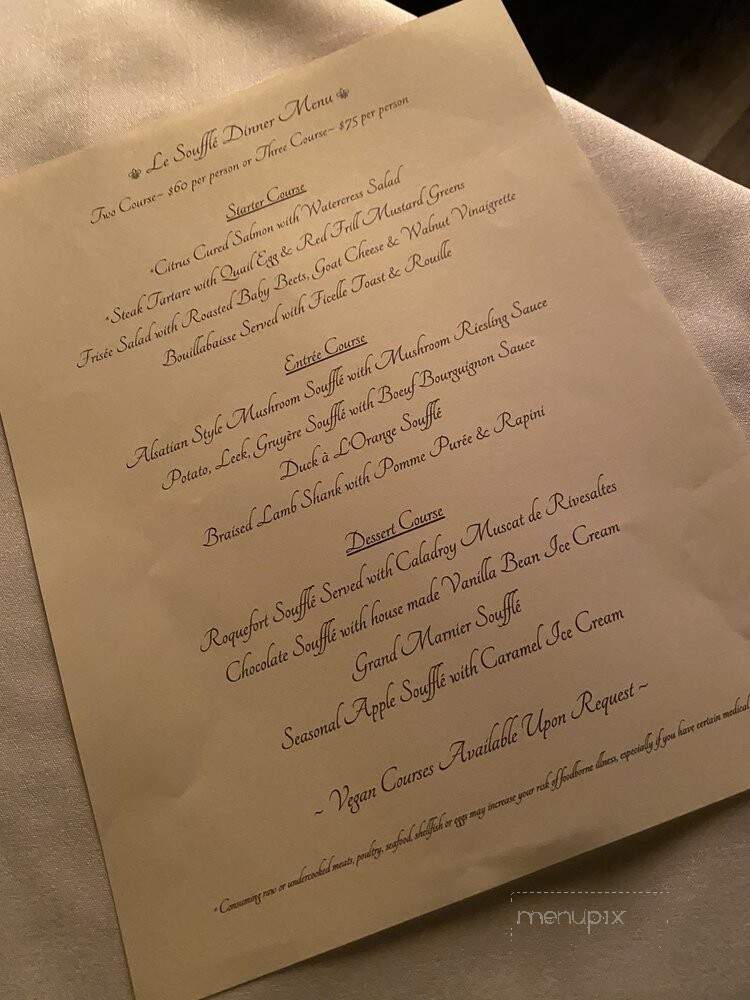 Le Soufflé Dinner Menu
Two Course~ $60 per person or Three Course~ $75 per person
Starter Course
*Citrus Cured Salmon with Watercress Salad
*Steak Tartare with Quail Egg & Red Frill Mustard Greens
Frisée Salad with Roasted Baby Beets, Goat Cheese & Walnut Vinaigrette
Bouillabaisse Served with Ficelle Toast & Rouille
Entrée Course
Alsatian Style Mushroom Soufflé with Mushroom Riesling Sauce
Potato, Leek, Gruyère Soufflé with Boeuf Bourguignon Sauce
Duck à L'Orange Soufflé
Braised Lamb Shank with Pomme Purée & Rapini
Dessert Course
Roquefort Soufflé Served with Caladroy Muscat de Rivesaltes
Chocolate Soufflé with house made Vanilla Bean Ice Cream
Grand Marnier Soufflé
Seasonal Apple Soufflé with Caramel Ice Cream
~ Vegan Courses Available Upon Request ~
* Consuming raw or undercooked meats, poultry, seafood, shellfish or eggs may increase your risk of foodborne illness, especially if you have certain medical
menupix